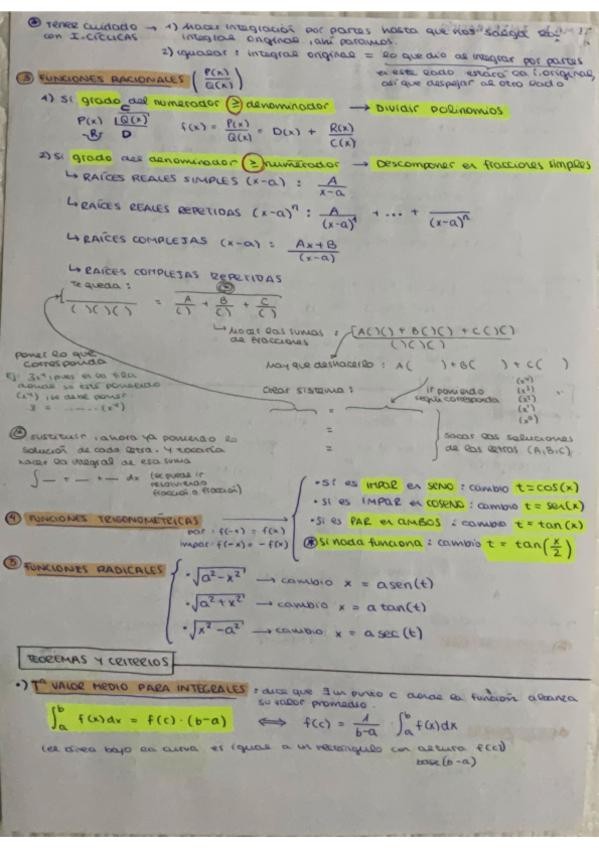 * Tener cuidado → 1) Hacer integración por partes hasta que nos salga la
con I. CÍCLICAS integral original, ahí paramos.
2) igualar: integral original = lo que dio al integrar por partes
en este lado estará la I. original,
así que despejar al otro lado
③ FUNCIONES RACIONALES (P(x)/Q(x))
1) Si grado del numerador ≥ denominador → Dividir polinomios
P(x) |Q(x) f(x) = P(x)/Q(x) = D(x) + R(x)/C(x)
-R- D
2) Si grado del denominador ≥ numerador → Descomponer en fracciones simples
↳ RAÍCES REALES SIMPLES (x-a) : A/(x-a)
↳ RAÍCES REALES REPETIDAS (x-a)ⁿ : A/(x-a)¹ + ... + /(x-a)ⁿ
↳ RAÍCES COMPLEJAS (x-a) : Ax+B/(x-a)
↳ RAÍCES COMPLEJAS REPETIDAS
Te queda :
/( )( )( ) = A/( ) + B/( ) + C/( )
↳ Hacer las sumas de fracciones : A( )( ) + B( )( ) + C( )( ) / ( )( )( )
Hay que deshacerlo : A( ) + B( ) + C( )
poner lo que
corresponda
Crear sistema :
ir poniendo
según corresponda
(x⁴)
(x³)
(x²)
(x¹)
(x⁰)
=
=
=
sacar las soluciones
de las letras (A,B,C)
3 = ...... (x⁴)
sustituir ahora ya poniendo la
solución de cada letra. Y tocaría
hacer la integral de esa suma
∫ — + — + — dx (se puede ir
resolviendo
fracción a fracción)
④ FUNCIONES TRIGONOMÉTRICAS
par : f(-x) = f(x)
impar : f(-x) = -f(x)
• Si es IMPAR en SENO : cambio t = cos(x)
• Si es IMPAR en COSENO : cambio t = sen(x)
• Si es PAR en AMBOS : cambio t = tan(x)
* Si nada funciona : cambio t = tan(x/2)
⑤ FUNCIONES RADICALES
• √(a²-x²) → cambio x = a sen(t)
• √(a²+x²) → cambio x = a tan(t)
• √(x²-a²) → cambio x = a sec(t)
TEOREMAS Y CRITERIOS
•) Tª VALOR MEDIO PARA INTEGRALES : dice que ∃ un punto c donde la función alcanza
su valor promedio.
∫ₐᵇ f(x)dx = f(c)·(b-a) ⟺ f(c) = 1/(b-a) · ∫ₐᵇ f(x)dx
(el área bajo la curva es igual a un rectángulo con altura f(c))
base (b-a)